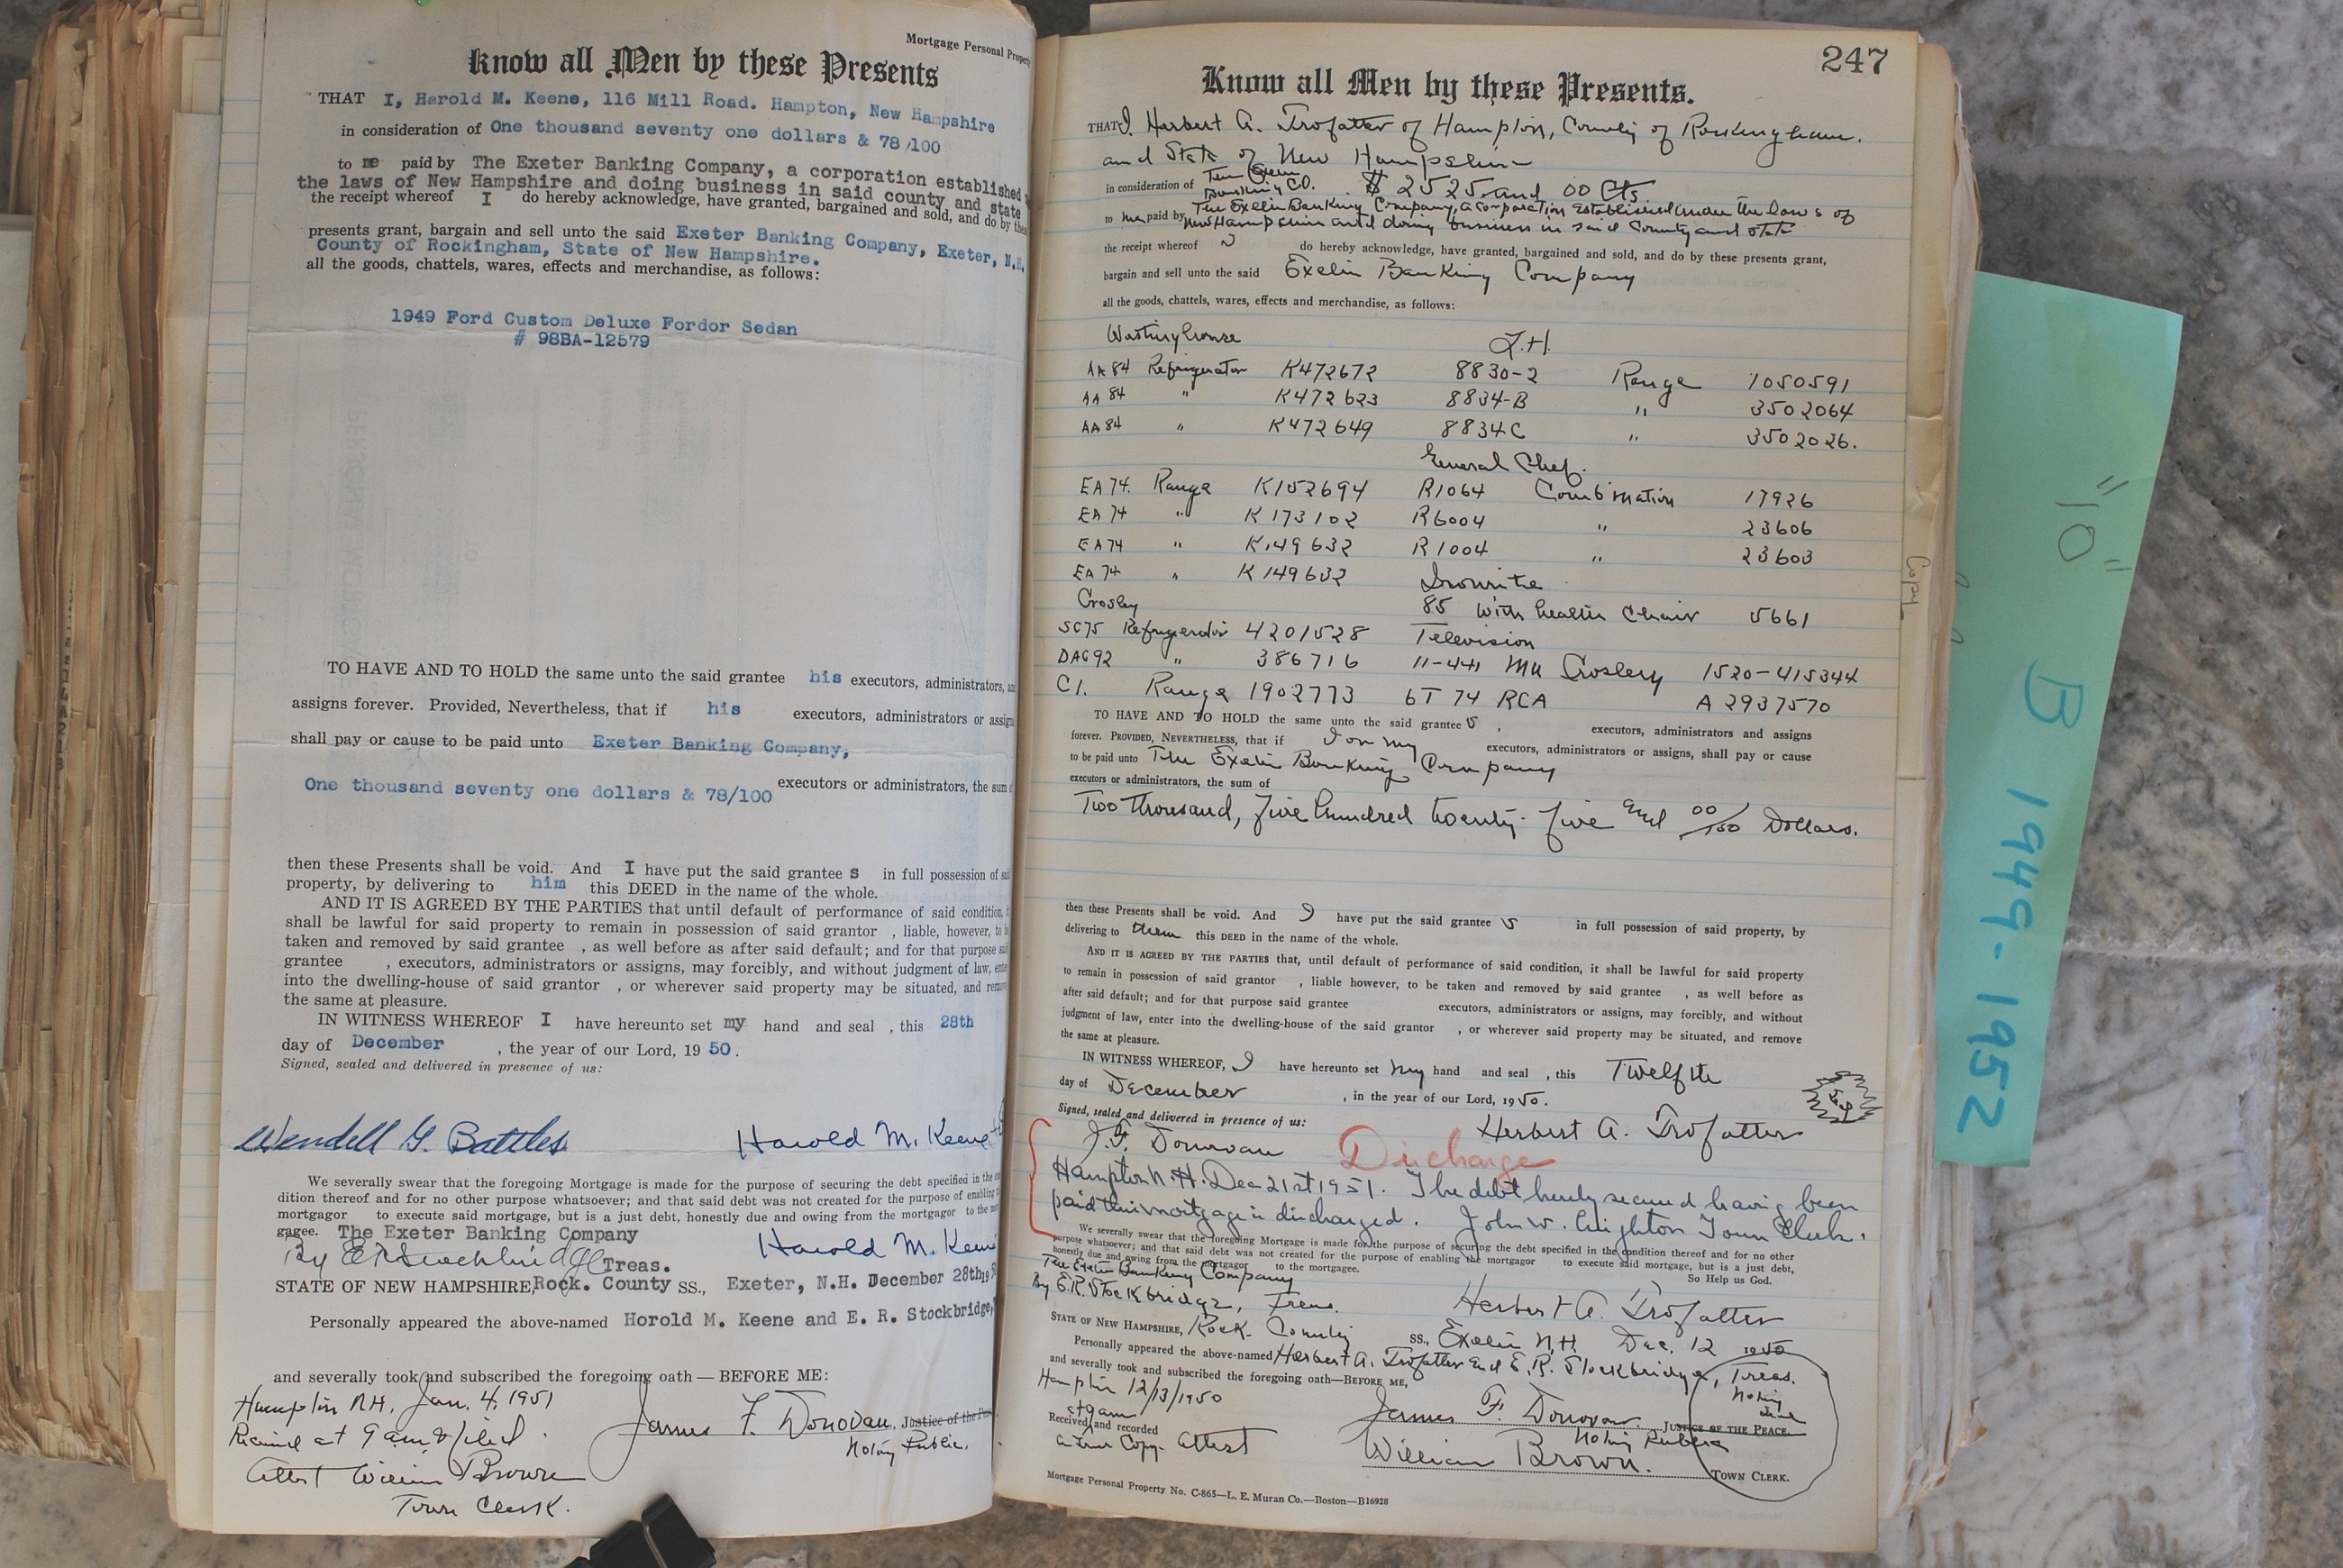 Mortgage Personal Property
Know all Men by these Presents
THAT I, Harold M. Keene, 116 Mill Road. Hampton, New Hampshire
in consideration of One thousand seventy one dollars & 78/100
to me paid by The Exeter Banking Company, a corporation established
the laws of New Hampshire and doing business in said county and state
the receipt whereof I do hereby acknowledge, have granted, bargained and sold, and do by these
presents grant, bargain and sell unto the said Exeter Banking Company, Exeter, N.H.
County of Rockingham, State of New Hampshire.
all the goods, chattels, wares, effects and merchandise, as follows:
1949 Ford Custom Deluxe Fordor Sedan
# 98BA-12579
TO HAVE AND TO HOLD the same unto the said grantee his executors, administrators,
assigns forever. Provided, Nevertheless, that if his executors, administrators or assigns
shall pay or cause to be paid unto Exeter Banking Company,
executors or administrators, the sum
One thousand seventy one dollars & 78/100
then these Presents shall be void. And I have put the said grantee s in full possession of
property, by delivering to him this DEED in the name of the whole.
AND IT IS AGREED BY THE PARTIES that until default of performance of said condition,
shall be lawful for said property to remain in possession of said grantor , liable, however, to
taken and removed by said grantee , as well before as after said default; and for that purpose
grantee , executors, administrators or assigns, may forcibly, and without judgment of law,
into the dwelling-house of said grantor , or wherever said property may be situated, and
the same at pleasure.
IN WITNESS WHEREOF I have hereunto set my hand and seal , this 28th
day of December , the year of our Lord, 19 50.
Signed, sealed and delivered in presence of us:
Wendell G. Battles Harold M. Keene
We severally swear that the foregoing Mortgage is made for the purpose of securing the debt specified in the
dition thereof and for no other purpose whatsoever; and that said debt was not created for the purpose of enabling
mortgagor to execute said mortgage, but is a just debt, honestly due and owing from the mortgagor to the
gagee. The Exeter Banking Company
By E R Stockbridge Treas. Harold M. Keene
STATE OF NEW HAMPSHIRE, Rock. County SS., Exeter, N.H. December 28th 19
Personally appeared the above-named Horold M. Keene and E. R. Stockbridge,
and severally took and subscribed the foregoing oath — BEFORE ME:
Hampton N.H. Jan. 4, 1951
James F. Donovan, Justice of the
Received at 9 am & filed Notary Public.
Attest William Brown
Town Clerk.
247
Know all Men by these Presents.
THAT I Herbert A. Trofatter of Hampton, County of Rockingham.
and State of New Hampshire
in consideration of Banking Co. $ 2525 and 00 Cts
to me paid by The Exeter Banking Company, a corporation established under the laws of
New Hampshire and doing business in said County and State
the receipt whereof I do hereby acknowledge, have granted, bargained and sold, and do by these presents grant,
bargain and sell unto the said Exeter Banking Company
all the goods, chattels, wares, effects and merchandise, as follows:
Westinghouse L.H.
AA 84 Refrigerator K472672 8830-2 Range 1050591
AA 84 " K472623 8834-B " 3502064
AA 84 " K472649 8834C " 3502026.
General Chef.
EA 74. Range K152694 R1064 Combination 17926
EA 74 " K173102 R6004 " 23606
EA 74 " K149632 R1004 " 23603
EA 74 " K149632 Ironrite
Crosley 85 with health Chair 5661
SC75 Refrigerator 4201528 Television
DAG92 " 386716 11-441 Mu Crosley 1520-415344
C1. Range 1902773 6T 74 RCA A 2937570
TO HAVE AND TO HOLD the same unto the said grantee s , executors, administrators and assigns
forever. PROVIDED, NEVERTHELESS, that if I or my executors, administrators or assigns, shall pay or cause
to be paid unto The Exeter Banking Company
executors or administrators, the sum of
Two thousand, five hundred twenty-five and 00/100 Dollars.
then these Presents shall be void. And I have put the said grantee s in full possession of said property, by
delivering to them this DEED in the name of the whole.
AND IT IS AGREED BY THE PARTIES that, until default of performance of said condition, it shall be lawful for said property
to remain in possession of said grantor , liable however, to be taken and removed by said grantee , as well before as
after said default; and for that purpose said grantee executors, administrators or assigns, may forcibly, and without
judgment of law, enter into the dwelling-house of the said grantor , or wherever said property may be situated, and remove
the same at pleasure.
IN WITNESS WHEREOF, I have hereunto set my hand and seal , this Twelfth
day of December , in the year of our Lord, 1950.
Signed, sealed and delivered in presence of us:
J. F. Donovan Herbert A. Trofatter
Discharge
Hampton N.H. Dec 21st 1951. The debt hereby secured having been
paid this mortgage is discharged. John W. Leighton Town Clerk.
We severally swear that the foregoing Mortgage is made for the purpose of securing the debt specified in the condition thereof and for no other
purpose whatsoever; and that said debt was not created for the purpose of enabling the mortgagor to execute said mortgage, but is a just debt,
honestly due and owing from the mortgagor to the mortgagee. So Help us God.
The Exeter Banking Company
By E.R. Stockbridge, Treas. Herbert A. Trofatter
STATE OF NEW HAMPSHIRE, Rock. County SS., Exeter N.H. Dec. 12 1950
Personally appeared the above-named Herbert A. Trofatter and E. R. Stockbridge, Treas.
and severally took and subscribed the foregoing oath—BEFORE ME,
Hampton 12/13/1950
at 9 am James F. Donovan JUSTICE OF THE PEACE.
Received and recorded Notary Public
a true Copy. Attest William Brown. TOWN CLERK.
Mortgage Personal Property No. C-865—L. E. Muran Co.—Boston—B16928
Copy
"10"
B 1949-1952